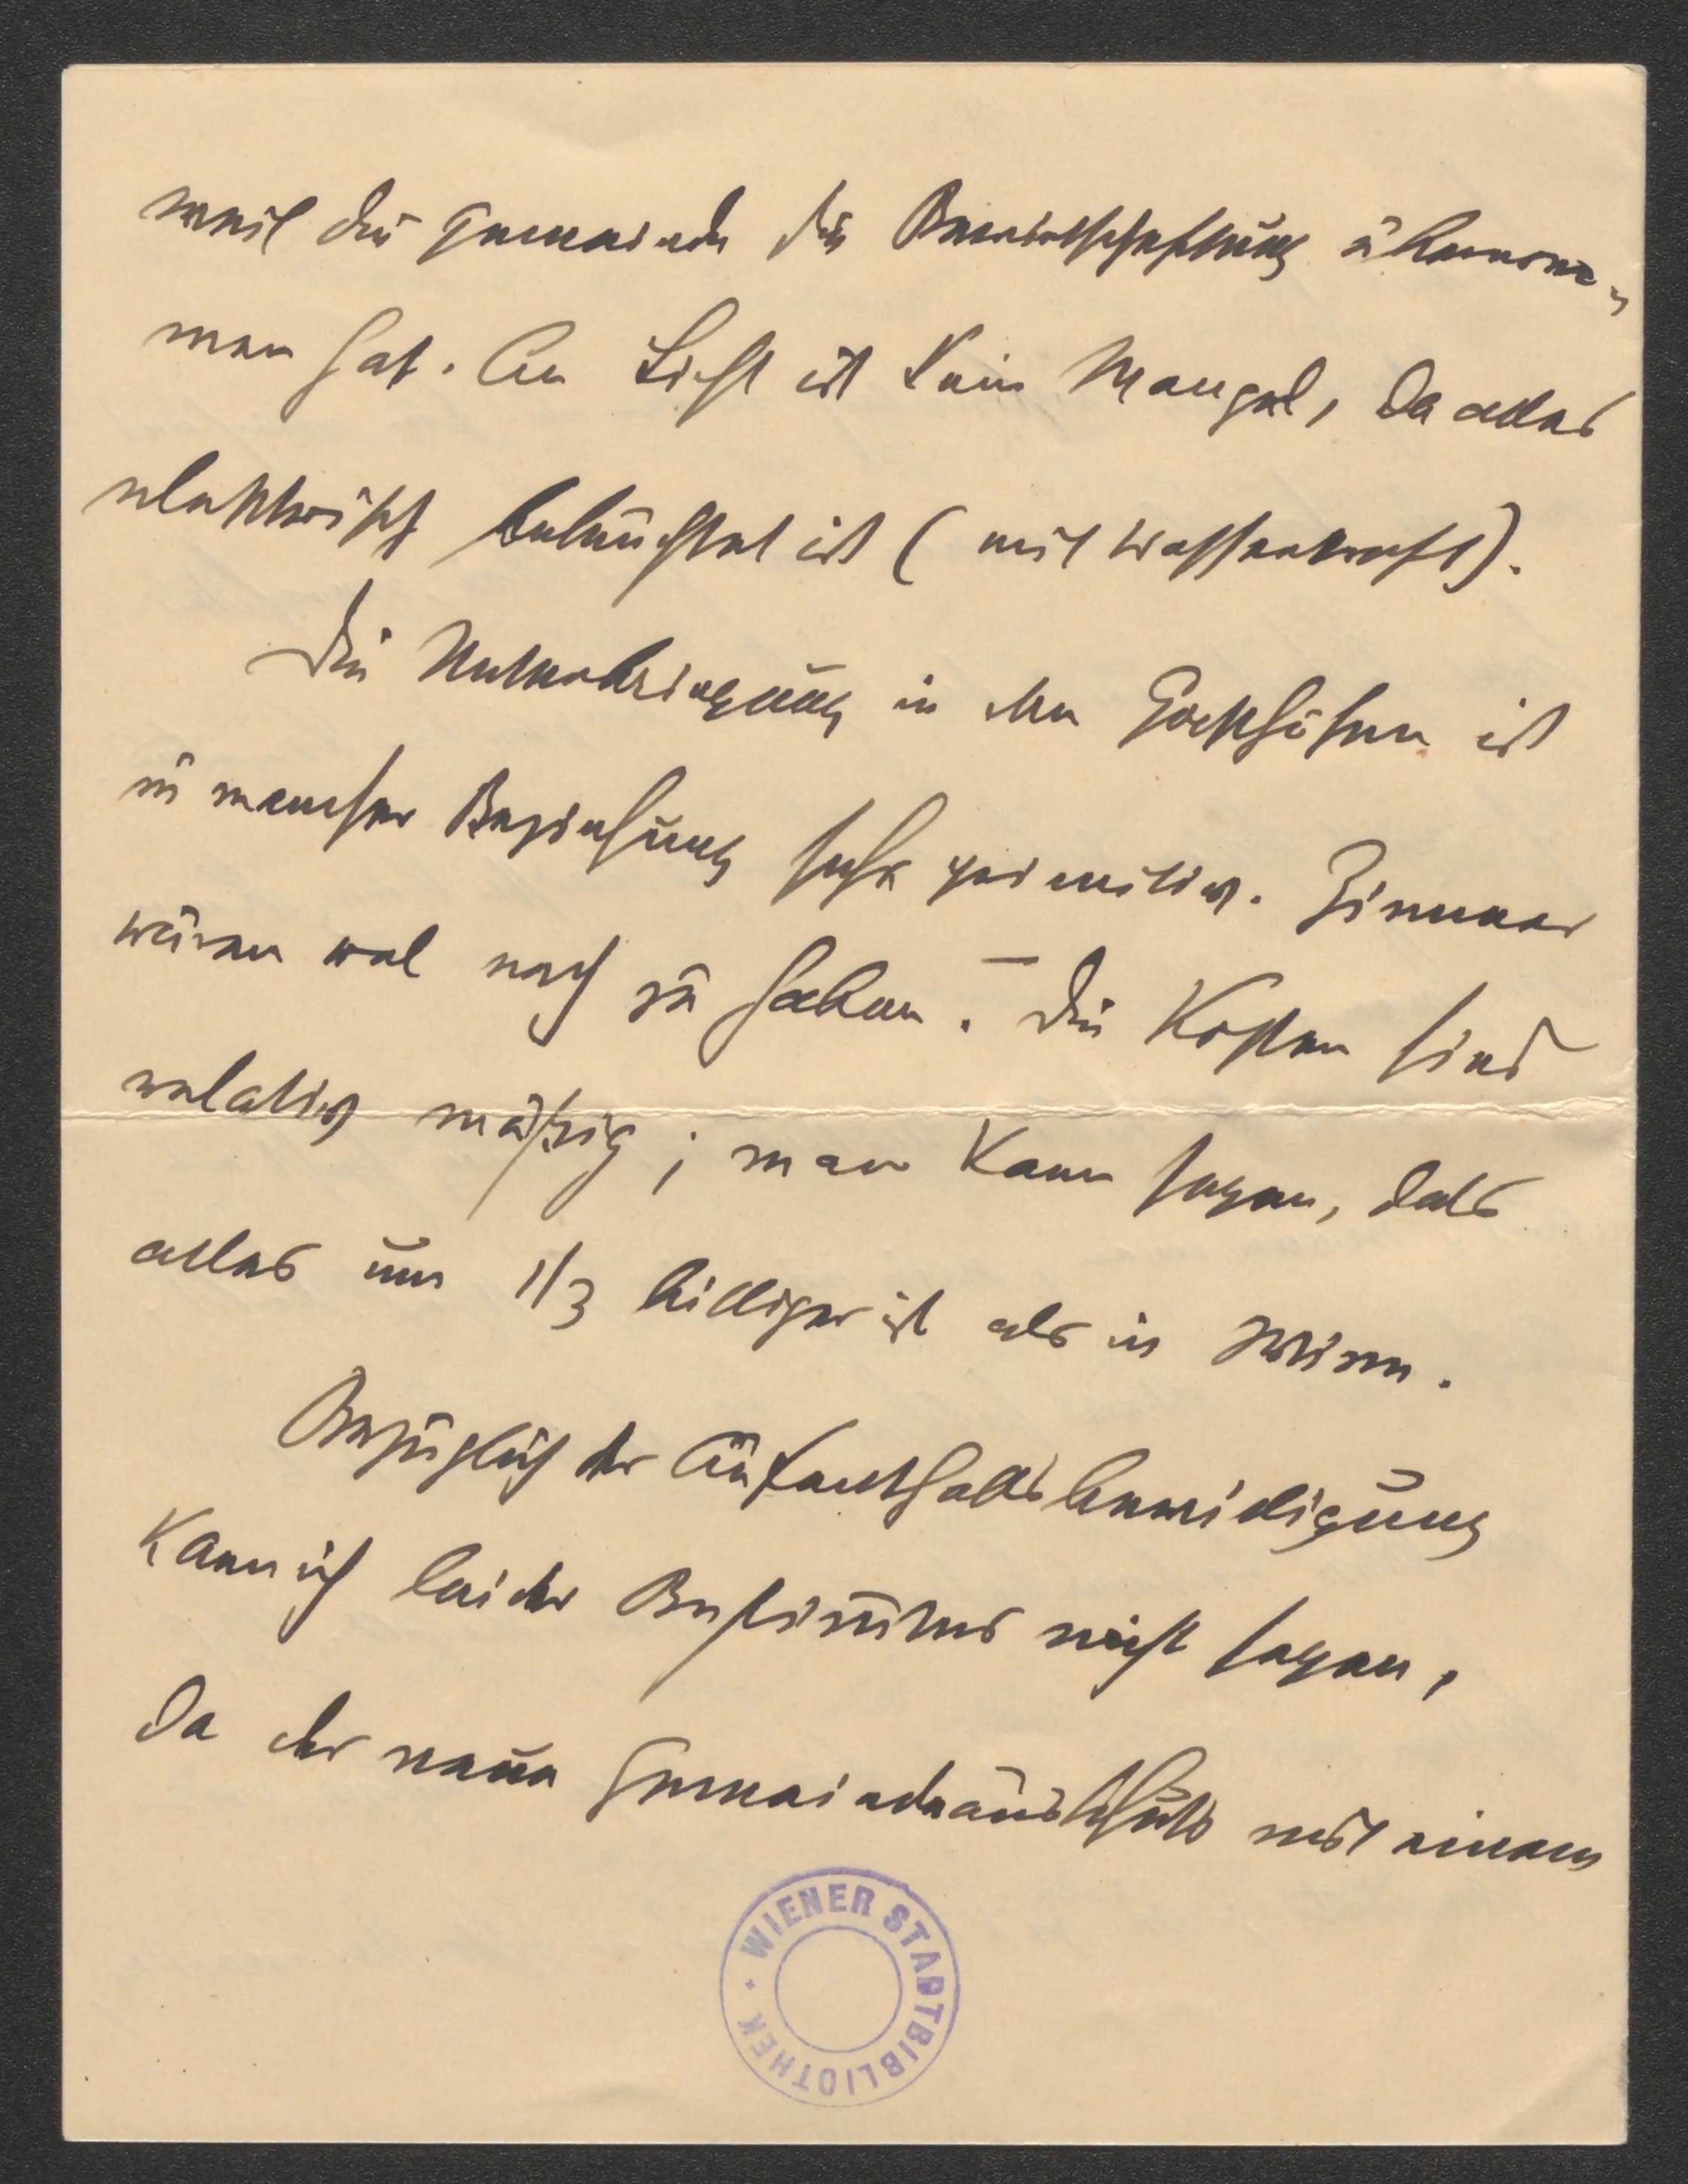 weil die Gemeinde die Bewirtschaftung übernom-
men hat. An Licht ist kein Mangel, da alles
elektrisch beleuchtet ist (mit Wasserkraft).
Die Unterbringung in den Gasthöfen ist
in mancher Beziehung sehr primitiv. Zimmer
wären wol noch zu haben. – Die Kosten sind
relativ mäßig; man kann sagen, dass
alles um 1/3 billiger ist als in Wien.
Bezüglich der Aufenthaltsbewilligung
kann ich leider Bestimmtes nicht sagen,
da der neue Gemeindeausschuss mit einem
WIENER STADTBIBLIOTHEK